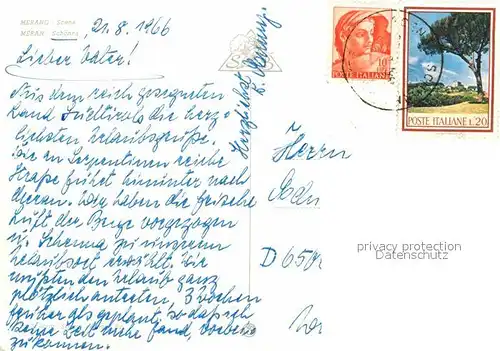 MERANO: Scena
MERAN: Schönna
21.8.1966
Lieber Vater!
Aus dem reich gesegneten
Land Südtirols die herz-
lichsten Urlaubsgrüße.
Die an Serpentinen reiche
Straße führt hinunter nach
Meran. Wir haben die frische
Luft der Berge vorgezogen
u. Schenna zu unserem
Urlaubsort erwählt. Wir
mußten den Urlaub ganz
plötzlich antreten, 3 Wochen
früher als geplant, so daß ich
keine Zeit mehr fand, vorbei
zu kommen.
Herzlichst
POSTE ITALIANE
10
POSTE ITALIANE L.20
Herrn
D 65
privacy protection
Datenschutz